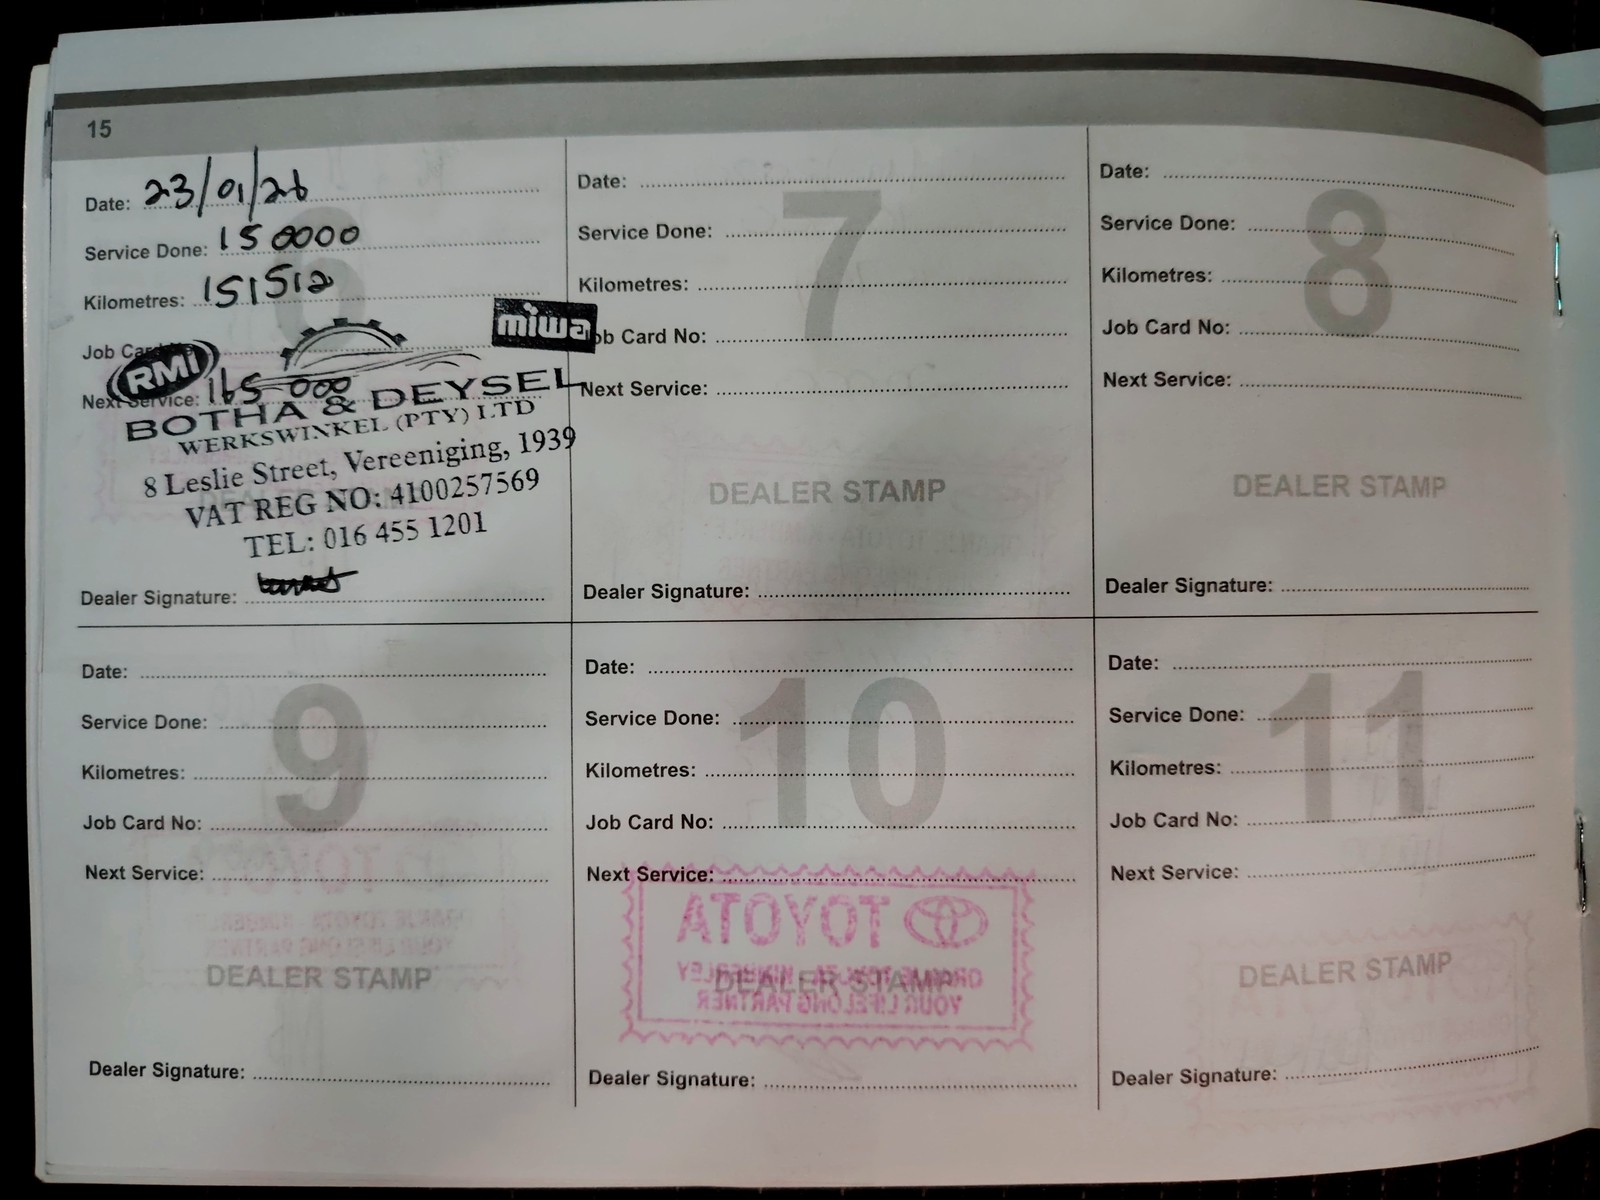 15
Date: 23/01/26
Service Done: 150000
Kilometres: 151512
Job Card
Next Service: 165 000
RMI
miwa
BOTHA & DEYSEL
WERKSWINKEL (PTY) LTD
8 Leslie Street, Vereeniging, 1939
VAT REG NO: 4100257569
TEL: 016 455 1201
Dealer Signature:
7
Date:
Service Done:
Kilometres:
Job Card No:
Next Service:
DEALER STAMP
Dealer Signature:
8
Date:
Service Done:
Kilometres:
Job Card No:
Next Service:
DEALER STAMP
Dealer Signature:
9
Date:
Service Done:
Kilometres:
Job Card No:
Next Service:
DEALER STAMP
Dealer Signature:
10
Date:
Service Done:
Kilometres:
Job Card No:
Next Service:
TOYOTA
DEALER STAMP
YOUR LIFELONG PARTNER
Dealer Signature:
11
Date:
Service Done:
Kilometres:
Job Card No:
Next Service:
DEALER STAMP
Dealer Signature: